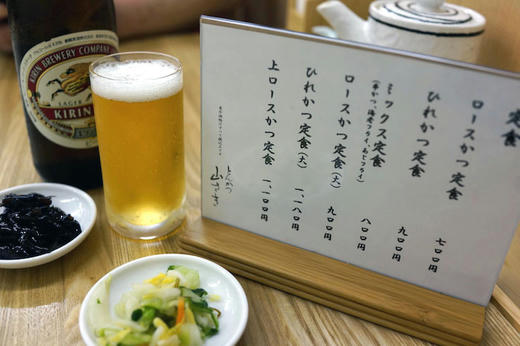 定食
ロースかつ定食 七〇〇円
ひれかつ定食 九〇〇円
ミックス定食 八〇〇円
(串かつ、海老フライ、あじフライ)
ロースかつ定食(大) 九〇〇円
ひれかつ定食(大) 一、一八〇円
上ロースかつ定食 一、一〇〇円
とんかつ
山さき
KIRIN BREWERY COMPANY
LAGER
KIRIN